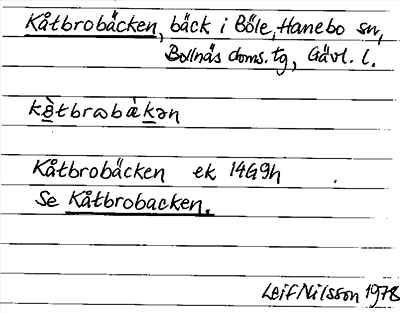 Kåtbrobäcken, bäck i Böle, Hanebo sn,
Bollnäs doms. tg, Gävl. l.
Kåtbrobäcken ek 14G9h
Se Kåtbrobacken.
Leif Nilsson 1978